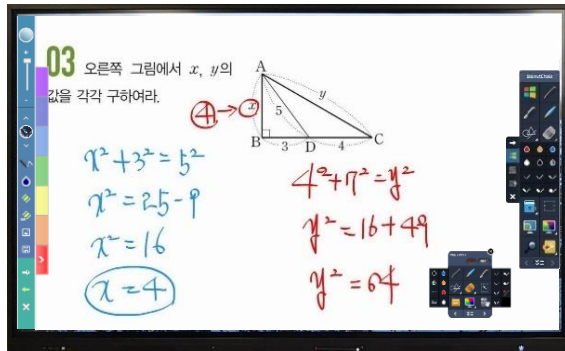 03 오른쪽 그림에서 x, y의
값을 각각 구하여라.
A
④→ⓧ 5 y
B 3 D 4 C
x²+3²=5²
x²=25-9
x²=16
x=4
4²+7²=y²
y²=16+49
y²=64